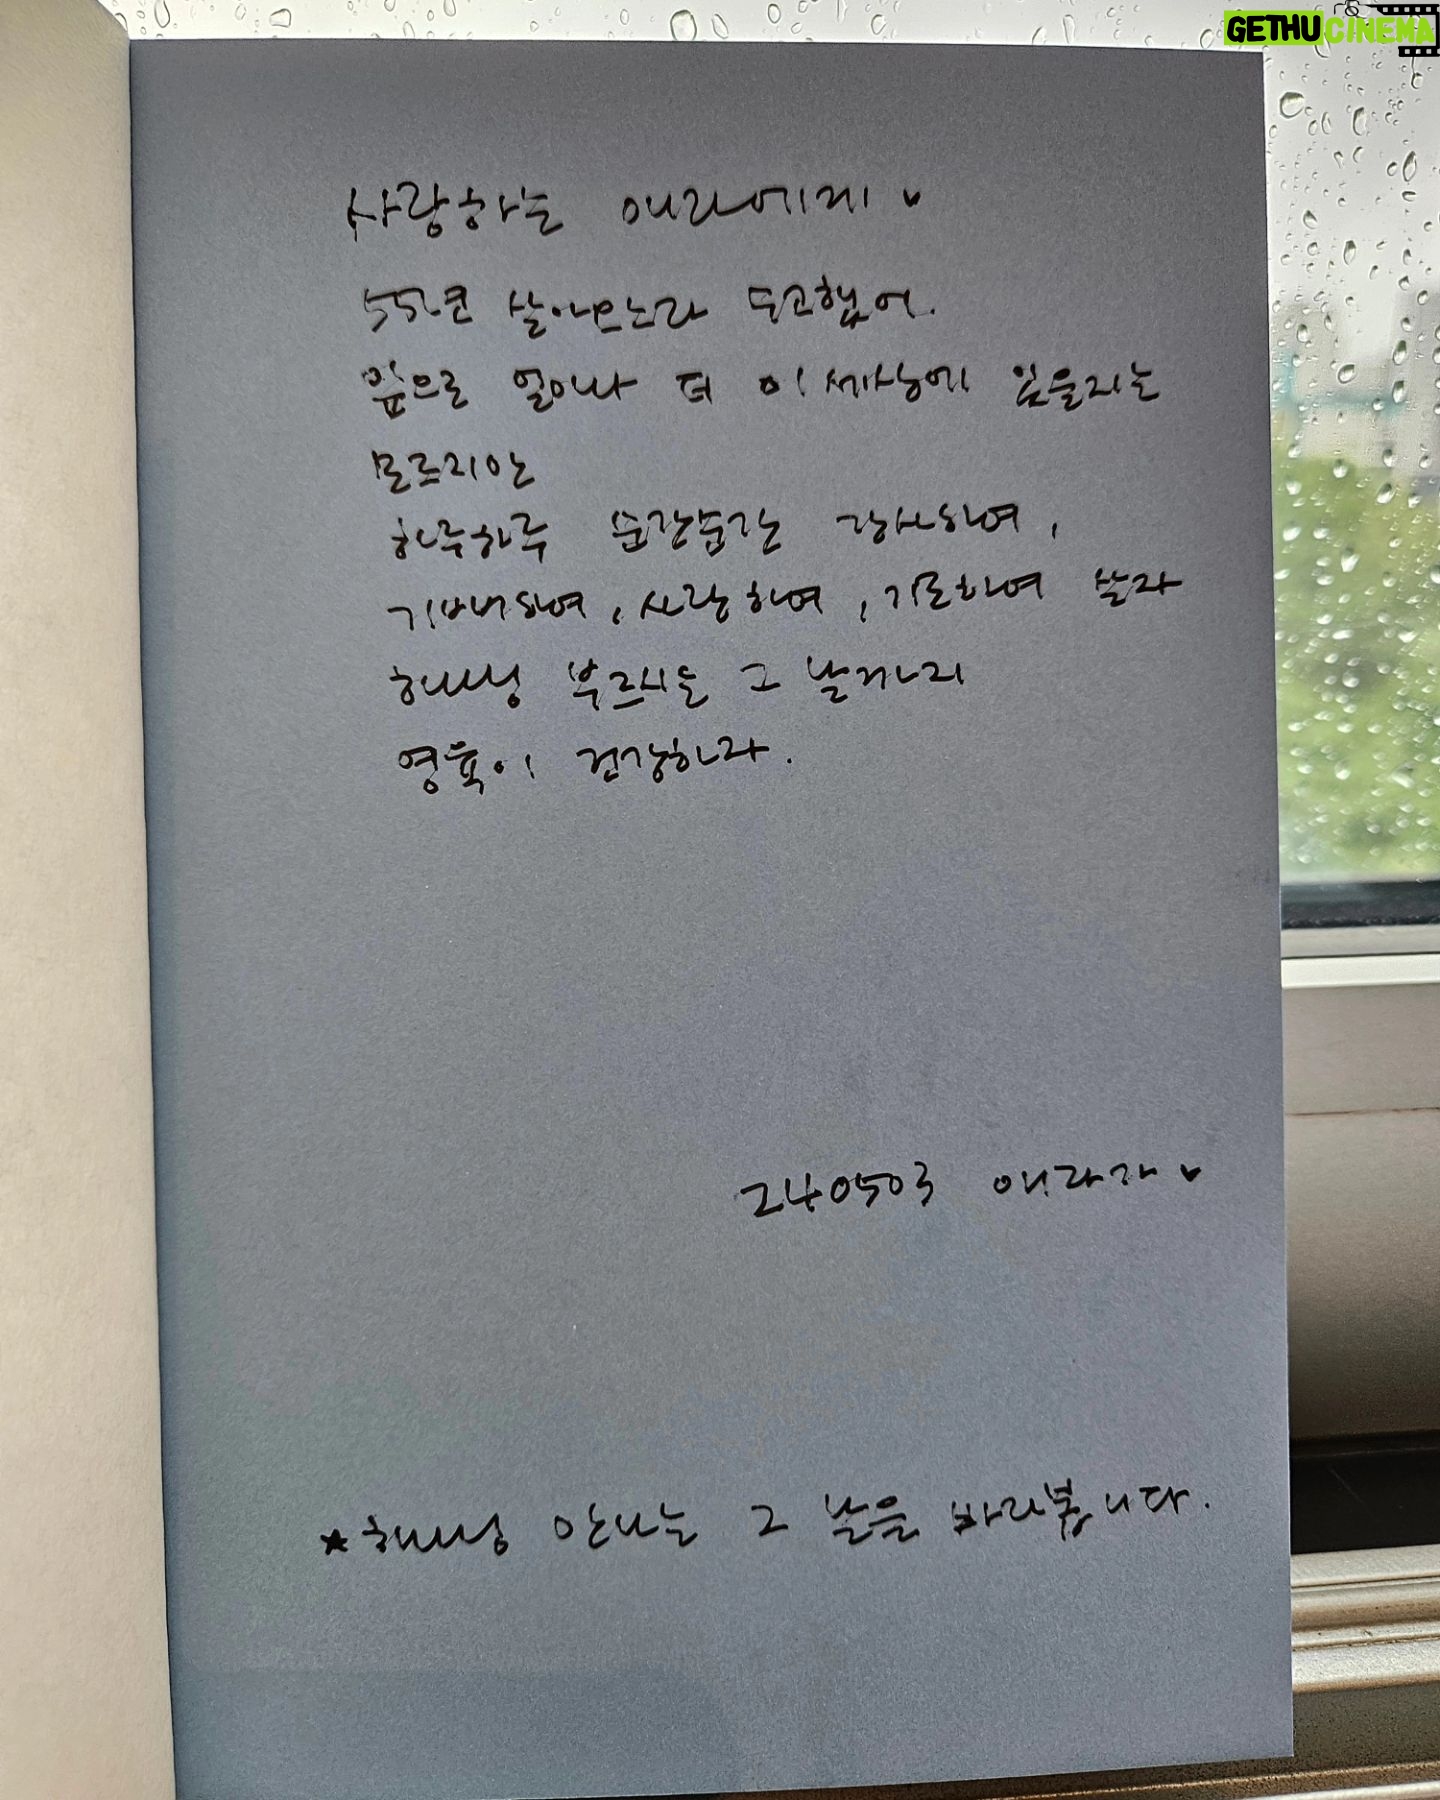 GETHUCINEMA
사랑하는 애라에게♥
55년 살아오느라 수고했어.
앞으로 얼마나 더 이 세상에 있을지는
모르지만
하루하루 순간순간 감사하며,
기뻐하며, 사랑하며, 기도하며 살자
하나님 부르시는 그 날까지
영육이 건강하라.
240503 애라가♥
★하나님 만나는 그 날을 바라봅니다.